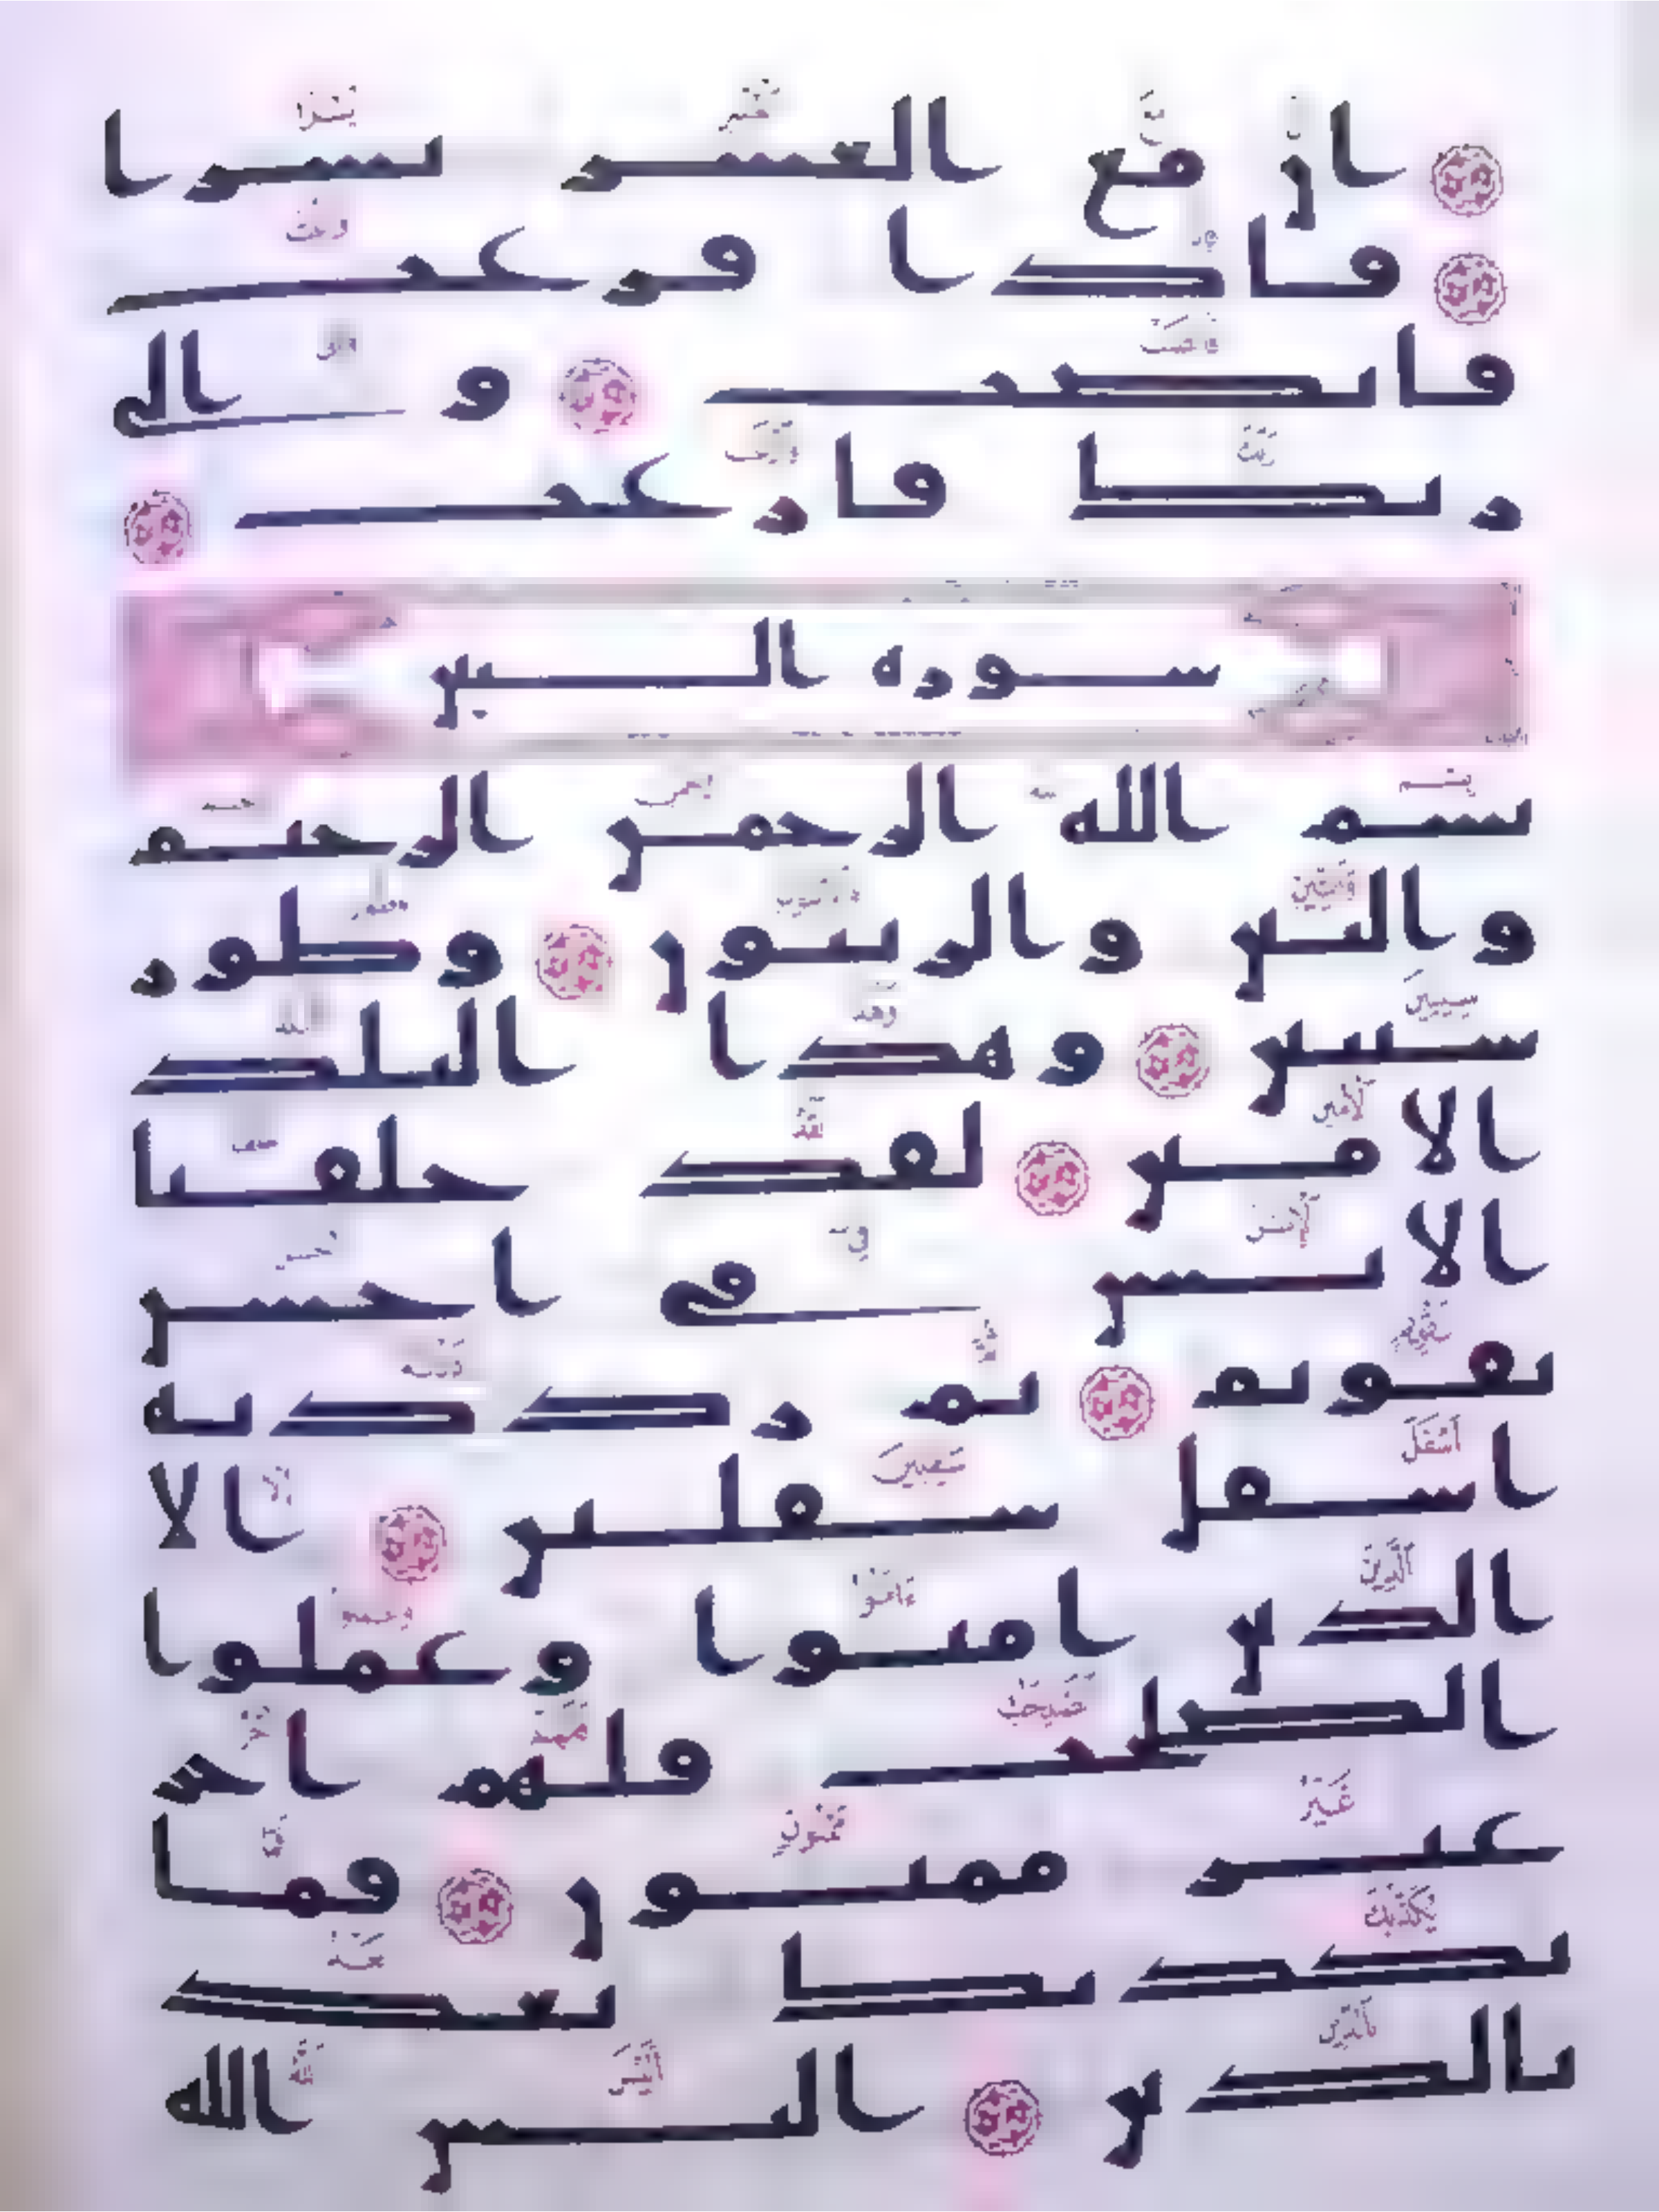 ان مع العسر يسرا
فاذا فرغت
فانصب والى
ربك فارغب
سوره التين
بسم الله الرحمن الرحيم
والتين والزيتون وطور
سينين وهذا البلد
الامين لقد خلقنا
الانسن في احسن
تقويم ثم رددنه
اسفل سفلين الا
الذين امنوا وعملوا
الصلحت فلهم اجر
غير ممنون فما
يكذبك بعد
بالدين اليس الله